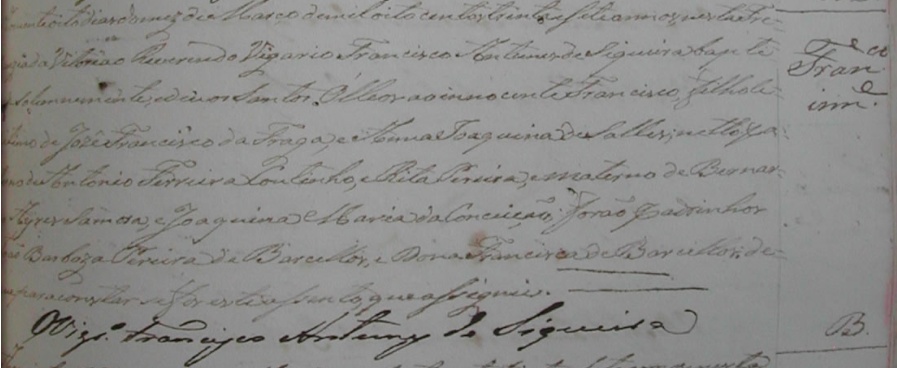 oito dias do mez de Março de mil oito centos trinta e sete annos, nesta Fre-
da Vitoria o Reverendo Vigario Francisco Antunes de Siqueira baptz
Fran.co
solemnemente, e deu os Santos Olleos ao innocente Francisco, filho le-
inn.e
timo de José Francisco da Fraga, e Anna Joaquina de Salles, netto pa-
no de Antonio Ferreira Coutinho, e Rita Pereira, e materno de Bernar-
Ayres e Joaquina Maria da Conceição, Forão Padrinhos
Barboza Pereira de Barcellos, e Dona Francisca de Barcellos, de-
para constar se fes este assento, que assignei.
O Vig.o Francisco Antunes de Siqueira
B.